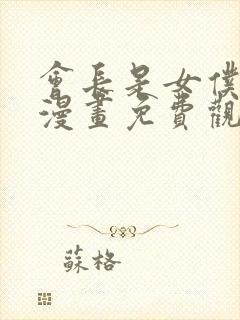 會長是女僕
漫畫免費觀
蘇格